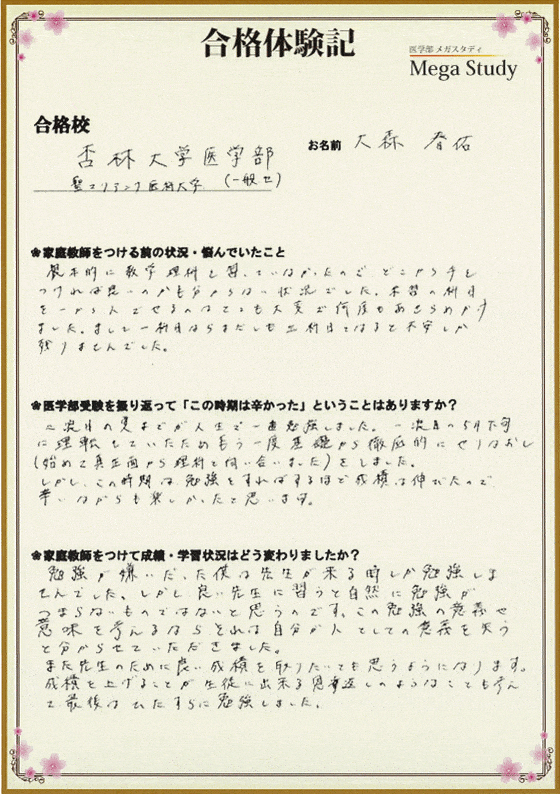 合格体験記
医学部 メガスタディ
Mega Study
合格校
お名前 大森 春佑
杏林大学医学部
聖マリアンナ医科大学 (一般セ)
❀家庭教師をつける前の状況・悩んでいたこと
根本的に数学理科を習っていなかったので どこから手を
つければ良いのかも分からない状況でした。未習の科目
を一から入るのはとても大変で何度もあきらめかけ
ました。まして一科目ならまだしも三科目ともなると不安しか
残りませんでした。
❀医学部受験を振り返って「この時期は辛かった」ということはありますか?
二浪目の夏までが人生で一番勉強しました。一浪目の5月下旬
に理転をしていたためもう一度基礎から徹底的にやりなおし
(始めて真正面から理科と向い合いました)をしました。
しかし、この時期は勉強をすればするほど成績は伸びたので
辛いながらも楽しかったと思います。
❀家庭教師をつけて成績・学習状況はどう変わりましたか?
勉強が嫌いだった僕は先生が来る時しか勉強しま
せんでした。しかし良い先生に習うと自然に勉強が
つまらないものではないと思うのです。この勉強の意義や
意味を考えるならそれは自分が人としての意義を失う
と分からせていただきました。
また先生のために良い成績を取りたいとも思うようになります。
成績を上げることが生徒に出来る恩返しのようなことも考え
て最後はひたすらに勉強しました。